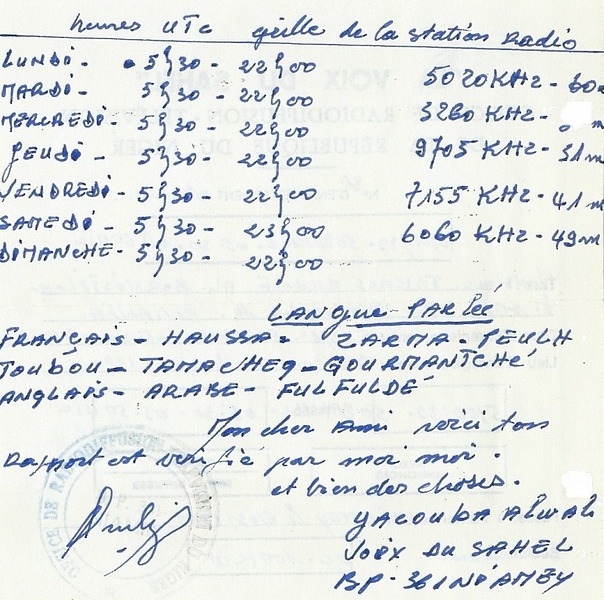 heures UTC grille de la station Radio
LUNDI - 5h30 - 22h00 5020 KHz - 60m
MARDI - 5h30 - 22h00 3260 KHz - m
MERCREDI - 5h30 - 22h00 9705 KHz - 31m
JEUDI - 5h30 - 22h00 7155 KHz - 41m
VENDREDI - 5h30 - 22h00 6060 KHz - 49m
SAMEDI - 5h30 - 23h00
DIMANCHE - 5h30 - 22h00
LANGUE PARLÉE
FRANÇAIS - HAUSSA - ZARMA - PEULH
TOUBOU - TAMACHEQ - GOURMANTCHÉ
ANGLAIS - ARABE - FULFULDÉ
Mon cher Ami voici ton
Rapport est verifié par moi moi.
et bien des choses.
YACOUBA Alwali
VOIX DU SAHEL
BP - 361 NIAMEY